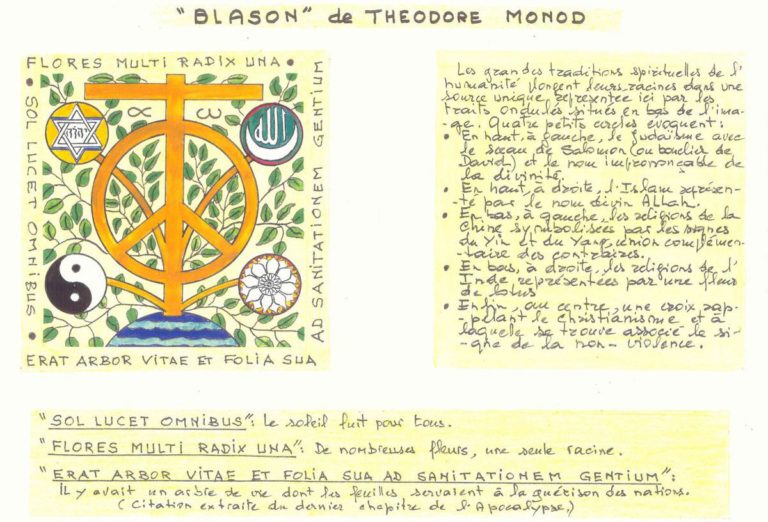 "BLASON" de THEODORE MONOD
FLORES MULTI RADIX UNA
SOL LUCET OMNIBUS
ERAT ARBOR VITAE ET FOLIA SUA
AD SANITATIONEM GENTIUM
α ω
יהוה
الله
Les grandes traditions spirituelles de l'
humanité plongent leurs racines dans une
source unique, représentée ici par les
traits ondulés situés en bas de l'ima-
-ge. Quatre petits cercles évoquent :
• En haut, à gauche, le judaïsme avec
le sceau de Salomon (ou bouclier de
David) et le nom imprononçable de
la divinité.
• En haut, à droite, l'Islam représen-
-té par le nom divin Allah.
• En bas, à gauche, les religions de la
Chine symbolisées par les signes
du Yin et du Yang, union complémen-
-taire des contraires.
• En bas, à droite, les religions de l'
Inde représentées par une fleur
de lotus
• Enfin, au centre, une croix rap-
-pelant le christianisme et à
laquelle se trouve associé le si-
-gne de la non-violence.
"SOL LUCET OMNIBUS": Le soleil luit pour tous.
"FLORES MULTI RADIX UNA": De nombreuses fleurs, une seule racine.
"ERAT ARBOR VITAE ET FOLIA SUA AD SANITATIONEM GENTIUM":
Il y avait un arbre de vie dont les feuilles servaient à la guérison des nations.
(Citation extraite du dernier chapitre de l'Apocalypse.)